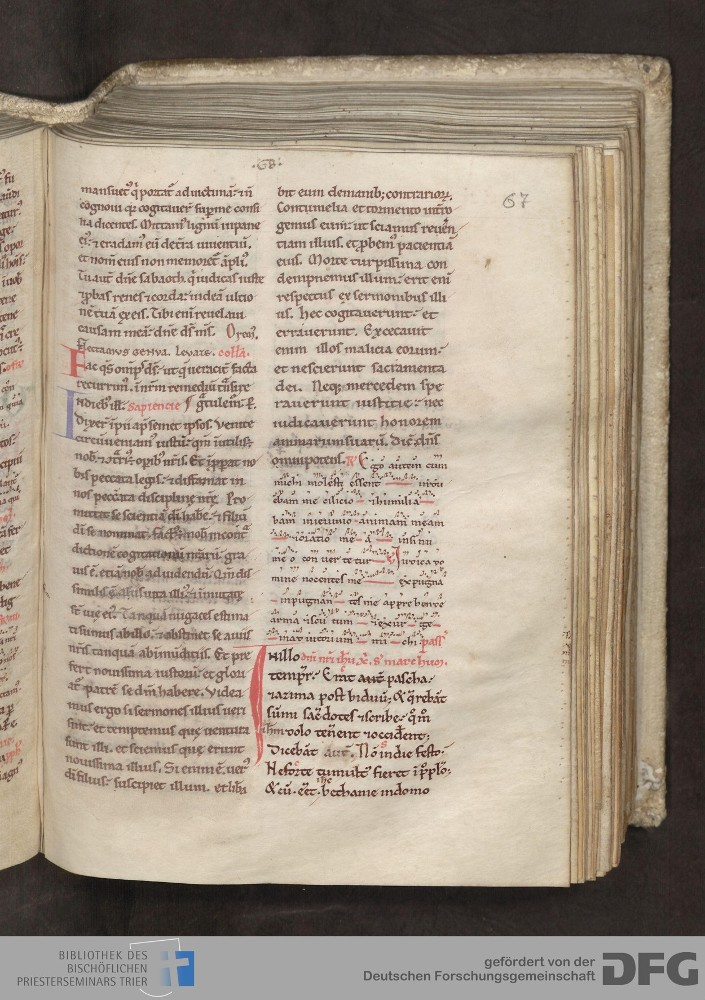 ·68·
67
mansuet⁹ q̇ portat̄ ad uictimā· ⁊ n̄
cognoui qr̄ cogitauer̄ sup me consi
lia dicentes. Mittam⁹ lignū in pane
ei⁹· ⁊ eradam⁹ eū de tr̄a uiuentiū,
et nom̄ eius non memoret̄ āplī.
Tu aut̄ dn̄e sabaoth q̇ iudicas iuste
⁊ ꝓbas renes ⁊ corda· uideā ulcio
nē tuā ex eis. Tibi eni reuelaui
causam meā· dn̄e ds̄ ms̄. Orem⁹.
Flectamus genua. Leuate. coll̄a.
Fac qs̄ omp̄ ds̄· ut q̇ ueraciter facta
recurrim⁹. in nr̄m remediū
In dieb; ill̄. Sapientie
Dixer̄ ipii ap̄ semet ipsos. Venite
circūueniam⁹ iustū· qm̄ inutilis ē
nob̄· ⁊ ōtri⁹ opib⁹ nr̄is. Et īpꝑat no
bis peccata legis· ⁊ diffamat in
nos peccata discipline nr̄e. Pro
mittit se scientiā di habe· ⁊ filiū
di se nominat. fact⁹ ē nob̄ in
ductione cogitationū nr̄arū. gra
uis ē. etiā nob̄ ad uidendū. Qm̄ dis
similis ē aliis uita illi⁹· ⁊ īmutate
st̄ uie ei⁹. Tanquā nugaces estima
ti sumus ab illo· ⁊ obstinet se a uiis
nr̄is tanquā ab īmūditiis. Et pre
fert nouissima iustorū· et glori
at̄ patrē se dm̄ habere. Videa
mus ergo si sermones illius ueri
sint· et temptemus que uentura
sunt illi· et sciemus que erunt
nouissima illius. Si enim ē uer⁹
di filius· suscipiet illum. et libe
bit eum de manib; contrarior̄.
Contumelia et tormento intro
gemus eum· ut sciamus reuerē
tiam illius. et ꝓbem⁹ pacientiā
eius. Morte turpissima con
dempnemus illum· erit eni
respectus ex sermonibus illi
us. Hec cogitauerunt· et
errauerunt. Excecauit
enim illos malicia eorum·
et nescierunt sacramenta
dei. Neq; mercedem spe
rauerunt iustitie· nec
iudicauerunt honorem
animarum suarū. Dic̄ dn̄s
omnipotens. Ego autem cum
michi molesti essent indu
ebam me cilicio· ⁊ humilia
bam in ieiunio animam meam
⁊ oratio me a in sinu
me o con uer te tur Iudica do
mine nocentes me expugna
inpugnan tes me appre hende
arma ⁊ scu tum ⁊ exur ge
in ad iutorium mi chi pass̄
In illo dn̄i nr̄i ihū x̄. s̄ marchum.
tempr̄· Erat aut̄ pascha·
⁊ azima post biduū· & q̄rebāt
sūmi sac̄dotes ⁊ scribe· qm̄
ihm̄ dolo tenerent ⁊ occident;
Dicebāt aut̄. Nō in die festo·
Ne forte tumult⁹ fieret ī ppl̄o;
& cū· eēt· ihc bethanie in domo
BIBLIOTHEK DES
BISCHÖFLICHEN
PRIESTERSEMINARS TRIER
gefördert von der
Deutschen Forschungsgemeinschaft
DFG